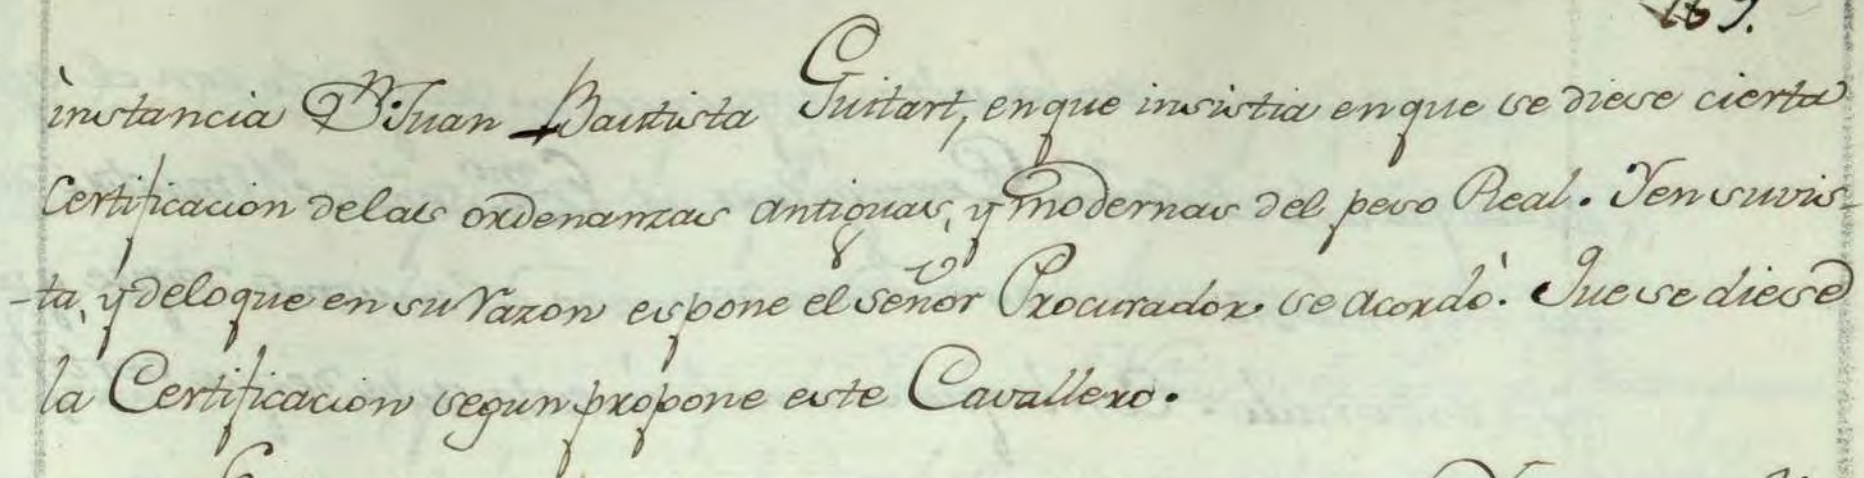 169.
instancia Dn. Juan Bautista Guitart, en que insistia en que se diese cierta
Certificacion de las ordenanzas antiguas, y modernas del peso Real. Y en su vis-
-ta, y de lo que en su razon espone el señor Procurador se acordò. Que se diese
la Certificacion segun propone este Cavallero.